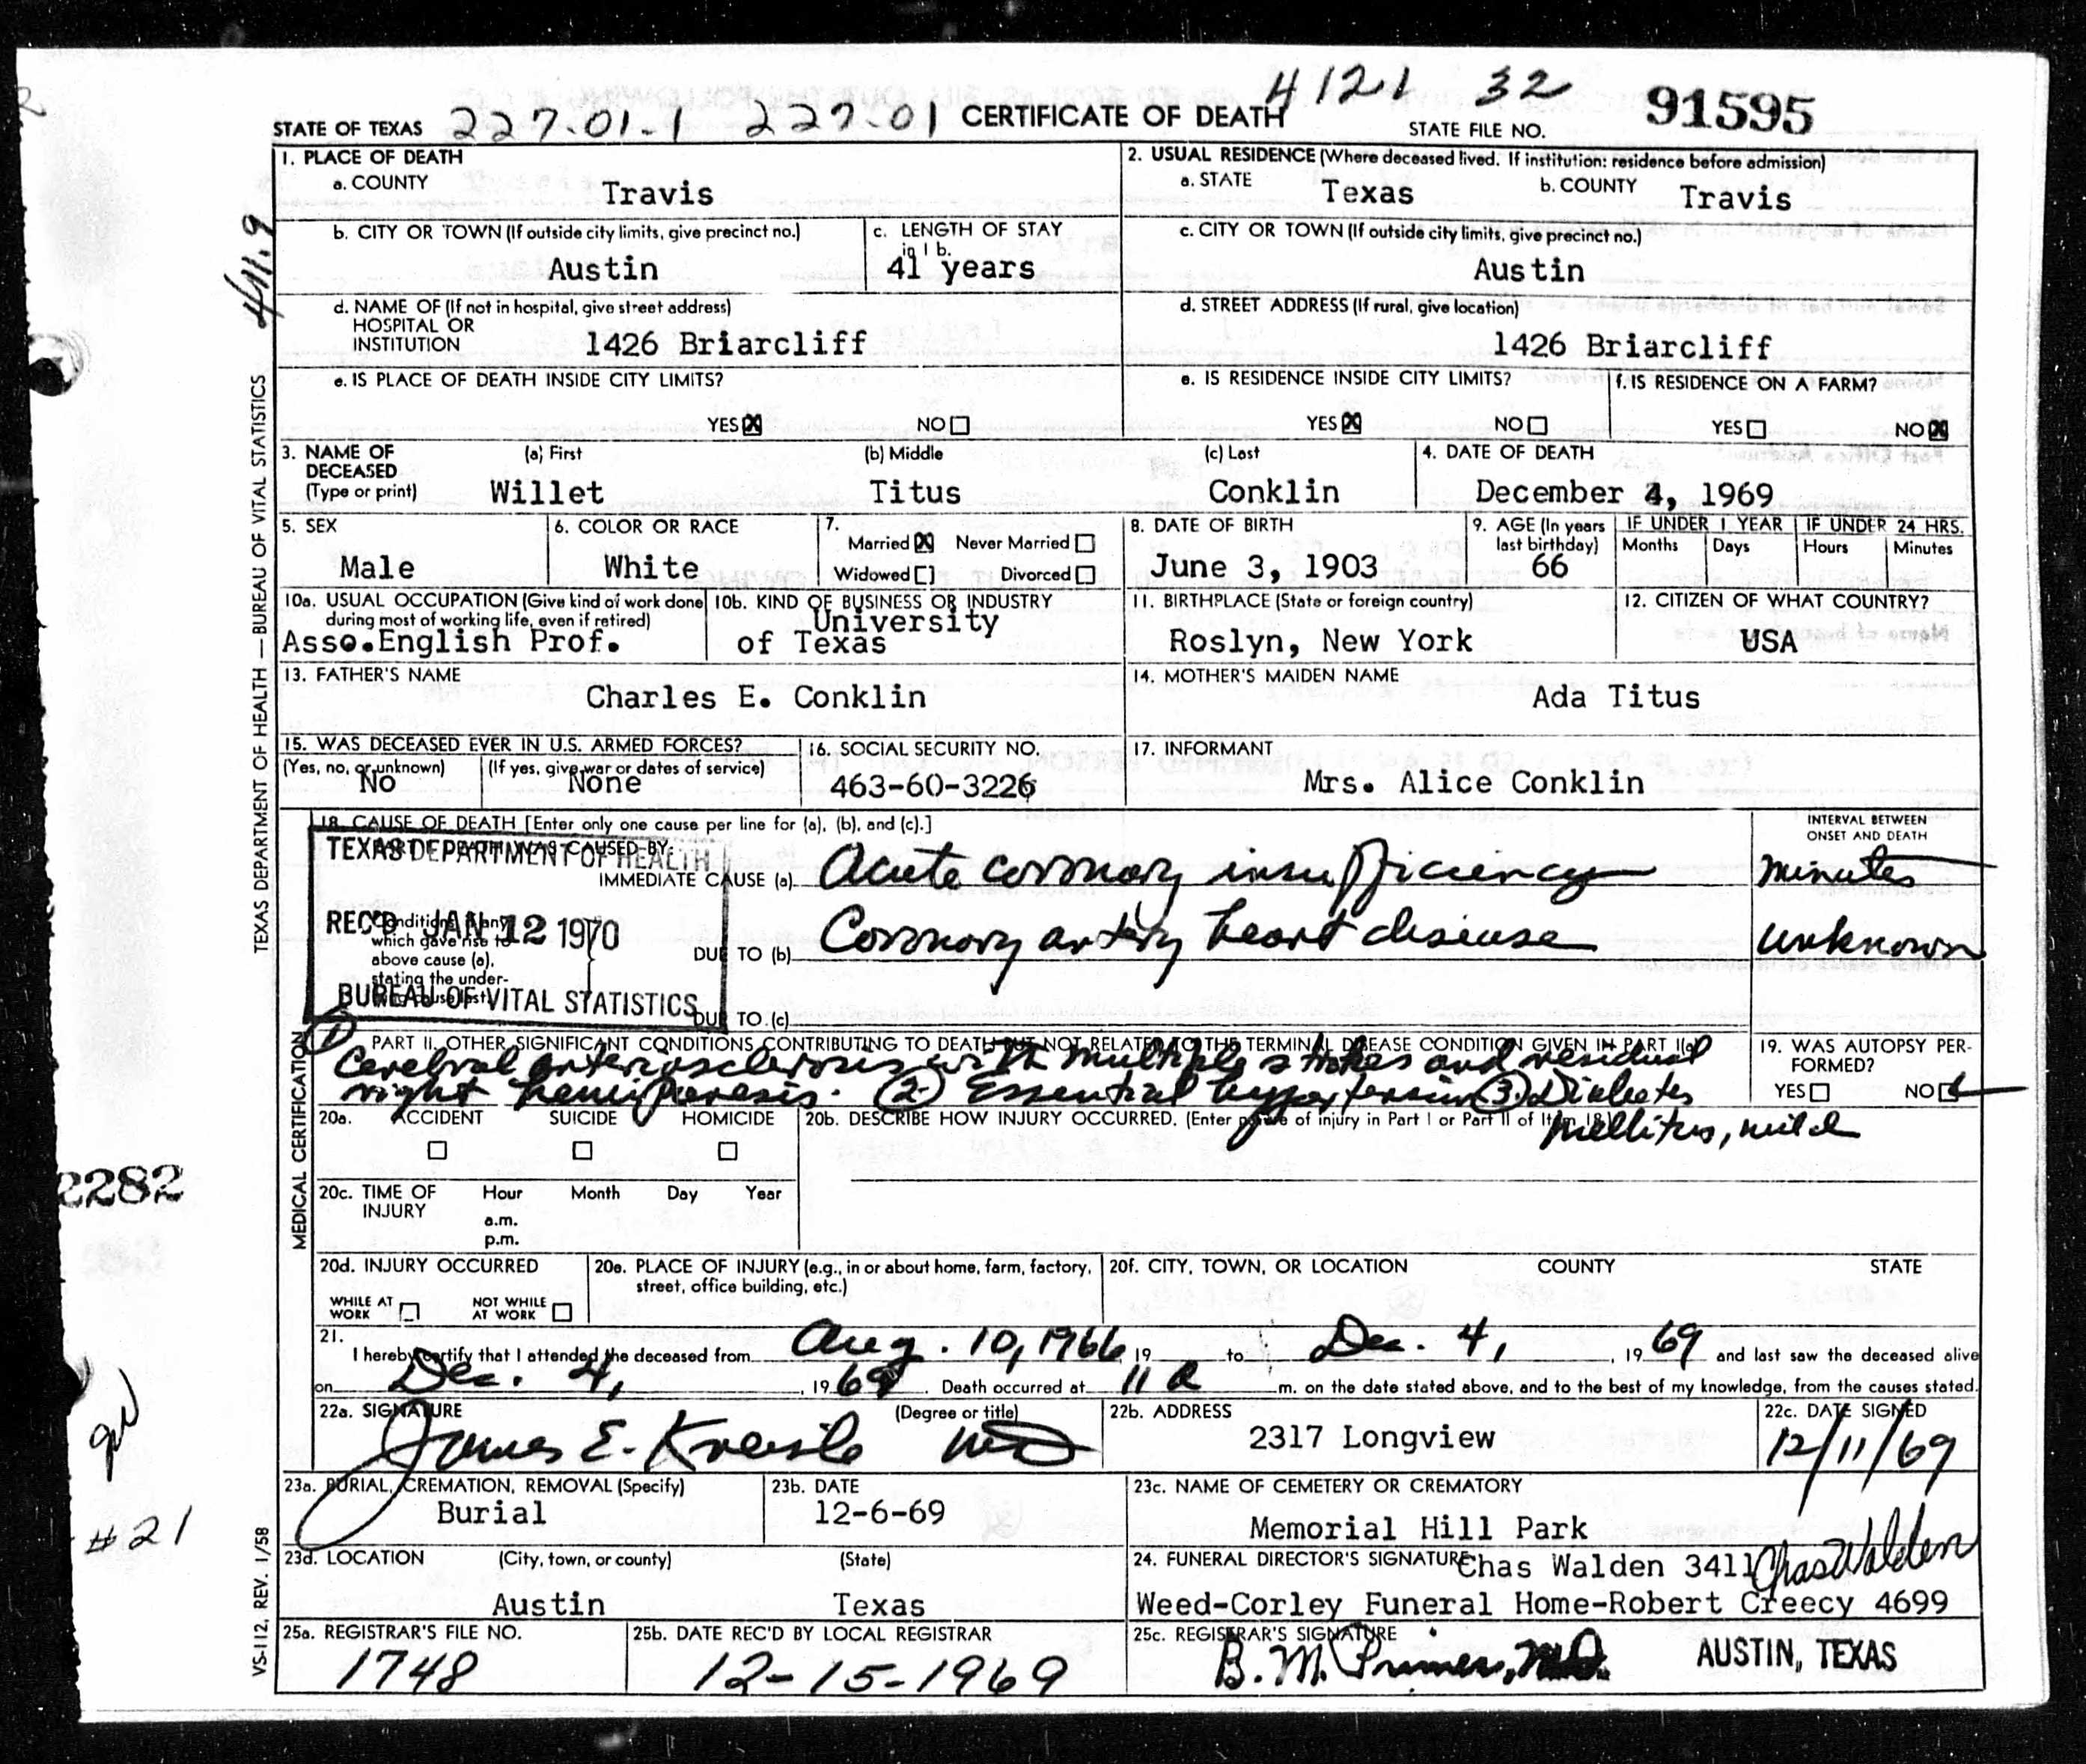 4121 32
STATE OF TEXAS 227.01-1 227.01 CERTIFICATE OF DEATH STATE FILE NO. 91595
1. PLACE OF DEATH
a. COUNTY
Travis
2. USUAL RESIDENCE (Where deceased lived. If institution: residence before admission)
a. STATE Texas b. COUNTY Travis
b. CITY OR TOWN (If outside city limits, give precinct no.)
Austin
c. LENGTH OF STAY
in 1 b.
41 years
c. CITY OR TOWN (If outside city limits, give precinct no.)
Austin
d. NAME OF (If not in hospital, give street address)
HOSPITAL OR
INSTITUTION 1426 Briarcliff
d. STREET ADDRESS (If rural, give location)
1426 Briarcliff
e. IS PLACE OF DEATH INSIDE CITY LIMITS?
YES X NO
e. IS RESIDENCE INSIDE CITY LIMITS?
YES X NO
f. IS RESIDENCE ON A FARM?
YES NO X
3. NAME OF
DECEASED
(Type or print)
(a) First
Willet
(b) Middle
Titus
(c) Last
Conklin
4. DATE OF DEATH
December 4, 1969
5. SEX
Male
6. COLOR OR RACE
White
7.
Married X Never Married
Widowed Divorced
8. DATE OF BIRTH
June 3, 1903
9. AGE (In years
last birthday)
66
IF UNDER 1 YEAR
Months Days
IF UNDER 24 HRS.
Hours Minutes
10a. USUAL OCCUPATION (Give kind of work done
during most of working life, even if retired)
Asso.English Prof.
10b. KIND OF BUSINESS OR INDUSTRY
University
of Texas
11. BIRTHPLACE (State or foreign country)
Roslyn, New York
12. CITIZEN OF WHAT COUNTRY?
USA
13. FATHER'S NAME
Charles E. Conklin
14. MOTHER'S MAIDEN NAME
Ada Titus
15. WAS DECEASED EVER IN U.S. ARMED FORCES?
(Yes, no, or unknown)
No
(If yes, give war or dates of service)
None
16. SOCIAL SECURITY NO.
463-60-3226
17. INFORMANT
Mrs. Alice Conklin
18. CAUSE OF DEATH [Enter only one cause per line for (a), (b), and (c).]
INTERVAL BETWEEN
ONSET AND DEATH
PART I. DEATH WAS CAUSED BY:
TEXAS DEPARTMENT OF HEALTH
REC'D JAN 12 1970
BUREAU OF VITAL STATISTICS
IMMEDIATE CAUSE (a) Acute coronary insufficiency minutes
Conditions, if any,
which gave rise to
above cause (a),
stating the under-
lying cause last.
DUE TO (b) Coronary artery heart disease unknown
DUE TO (c)
PART II. OTHER SIGNIFICANT CONDITIONS CONTRIBUTING TO DEATH BUT NOT RELATED TO THE TERMINAL DISEASE CONDITION GIVEN IN PART I(a)
① Cerebral arteriosclerosis with multiple strokes and residual
right hemiparesis. ② Essential hypertension ③ Diabetes
mellitus, mild
19. WAS AUTOPSY PER-
FORMED?
YES NO
20a. ACCIDENT SUICIDE HOMICIDE
20b. DESCRIBE HOW INJURY OCCURRED. (Enter nature of injury in Part I or Part II of Item 18.)
20c. TIME OF
INJURY
Hour Month Day Year
a.m.
p.m.
20d. INJURY OCCURRED
WHILE AT
WORK
NOT WHILE
AT WORK
20e. PLACE OF INJURY (e.g., in or about home, farm, factory,
street, office building, etc.)
20f. CITY, TOWN, OR LOCATION COUNTY STATE
21.
I hereby certify that I attended the deceased from Aug. 10, 1966, 19 to Dec. 4, , 1969 and last saw the deceased alive
on Dec. 4, , 1969. Death occurred at 11 a m. on the date stated above, and to the best of my knowledge, from the causes stated.
22a. SIGNATURE (Degree or title)
James E. Kreisle MD
22b. ADDRESS
2317 Longview
22c. DATE SIGNED
12/11/69
23a. BURIAL, CREMATION, REMOVAL (Specify)
Burial
23b. DATE
12-6-69
23c. NAME OF CEMETERY OR CREMATORY
Memorial Hill Park
23d. LOCATION (City, town, or county) (State)
Austin Texas
24. FUNERAL DIRECTOR'S SIGNATURE
Chas Walden 3411 Chas Walden
Weed-Corley Funeral Home-Robert Creecy 4699
25a. REGISTRAR'S FILE NO.
1748
25b. DATE REC'D BY LOCAL REGISTRAR
12-15-1969
25c. REGISTRAR'S SIGNATURE
B. M. Primer, M.D. AUSTIN, TEXAS
TEXAS DEPARTMENT OF HEALTH — BUREAU OF VITAL STATISTICS
MEDICAL CERTIFICATION
VS-112, REV. 1/58
411.9
2282
#21